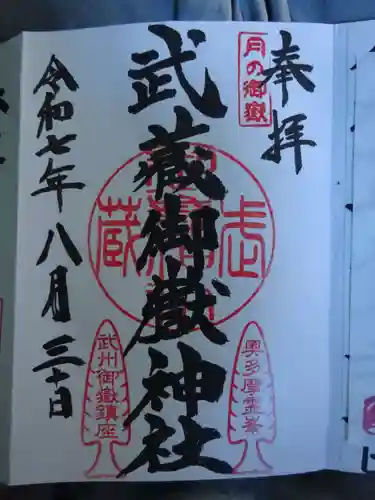 奉拝
月の御嶽
武蔵御嶽神社
奥多摩霊峯
武州御嶽鎮座
令和七年八月三十日